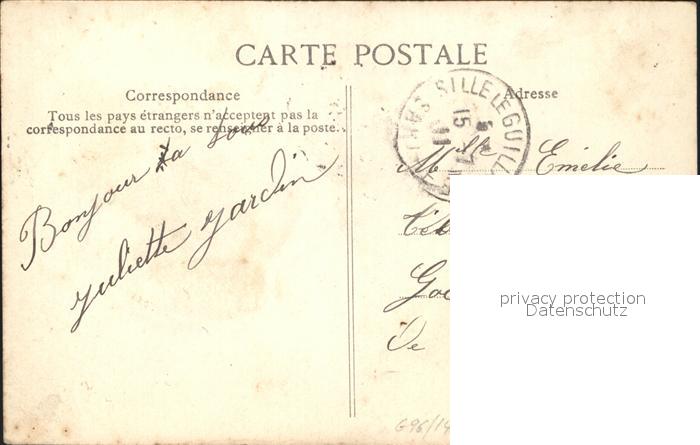 CARTE POSTALE
Correspondance
Tous les pays étrangers n'acceptent pas la
correspondance au recto, se renseigner à la poste.
Bonjour à tous
Juliette Jardin
Adresse
SILLE LE GUILL
15
11
Mlle Emélie
De
privacy protection
Datenschutz
G96/14